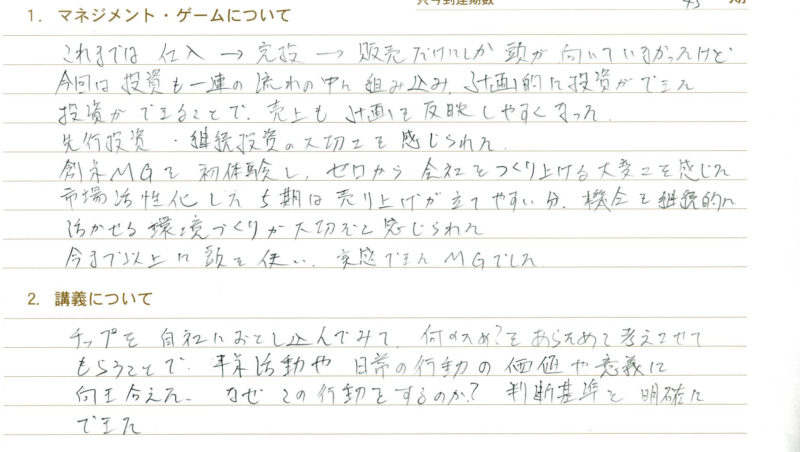 只今到達期数 45 期
1. マネジメント・ゲームについて
これまでは 仕入 → 完投 → 販売だけにしか 頭が 向いていなかったけど
今回は 投資も一連の流れの中に 組み込み、計画的に投資ができた
投資ができることで、売上も 計画を 反映しやすくなった。
先行投資・継続投資の大切さを 感じられた。
創系MGを 初体験し、ゼロから 会社をつくり上げる大変さを感じた
市場活性化した5期は売り上げが立てやすい分、機会を継続的に
活かせる 環境づくりが大切だと 感じられた
今まで以上に 頭を 使い、実感できた MGでした
2. 講義について
チップを 自社におとし込んでみて、何のため?を あらためて考えさせて
もらうことで、事業活動や 日常の行動の価値や意義に
向き合えた。なぜ この行動をするのか? 判断基準を 明確に
できた